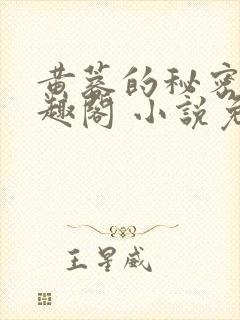 黄墓的秘密
趣阁 小說免
王星威